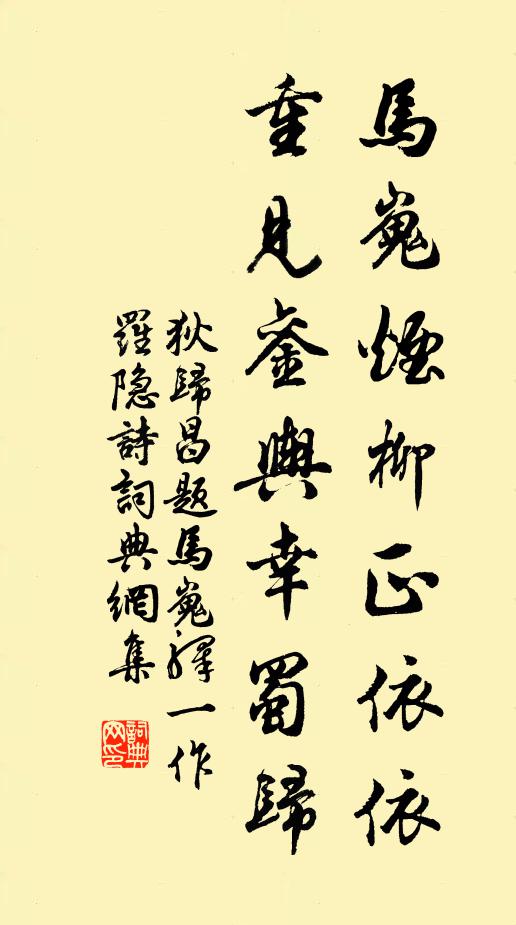 馬嵬煙柳正依依
重見鑾輿幸蜀歸
狄歸昌題馬嵬驛一作
羅隐詩詞典網集
詞典網印